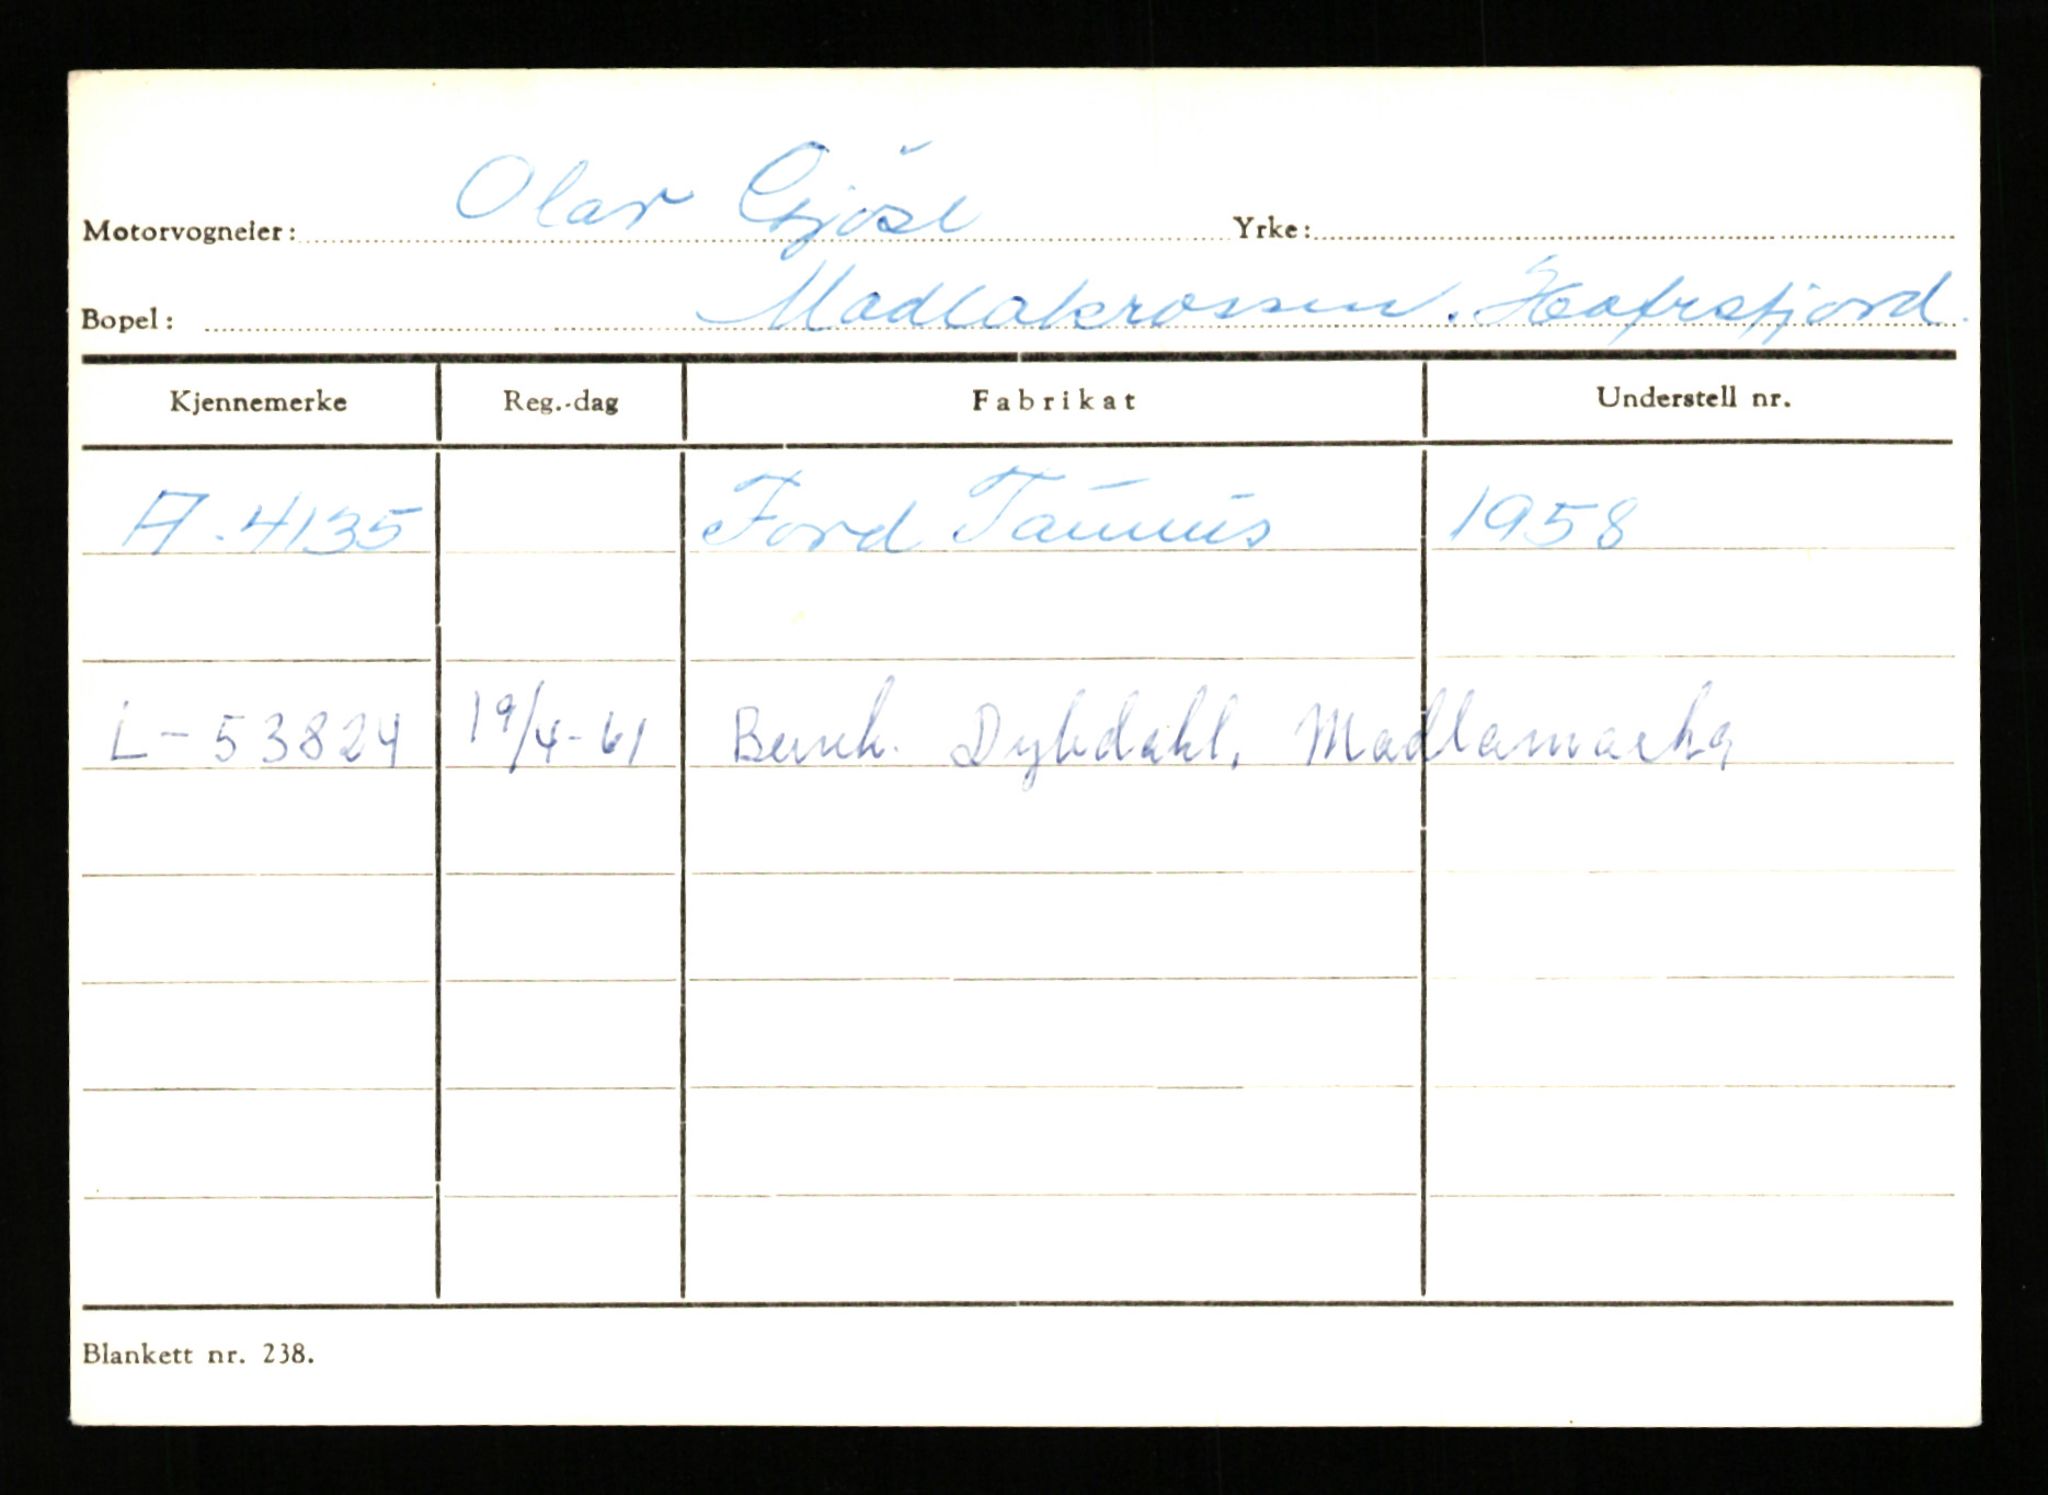 Motorvogneier: Olav Gjöse Yrke:
Bopel: Madlakrossen. Hafrsfjord.
Kjennemerke Reg.-dag Fabrikat Understell nr.
A-4135 Ford Taunus 1958
L-53824 19/4-61 Dybdahl, Madlamarka
Blankett nr. 238.